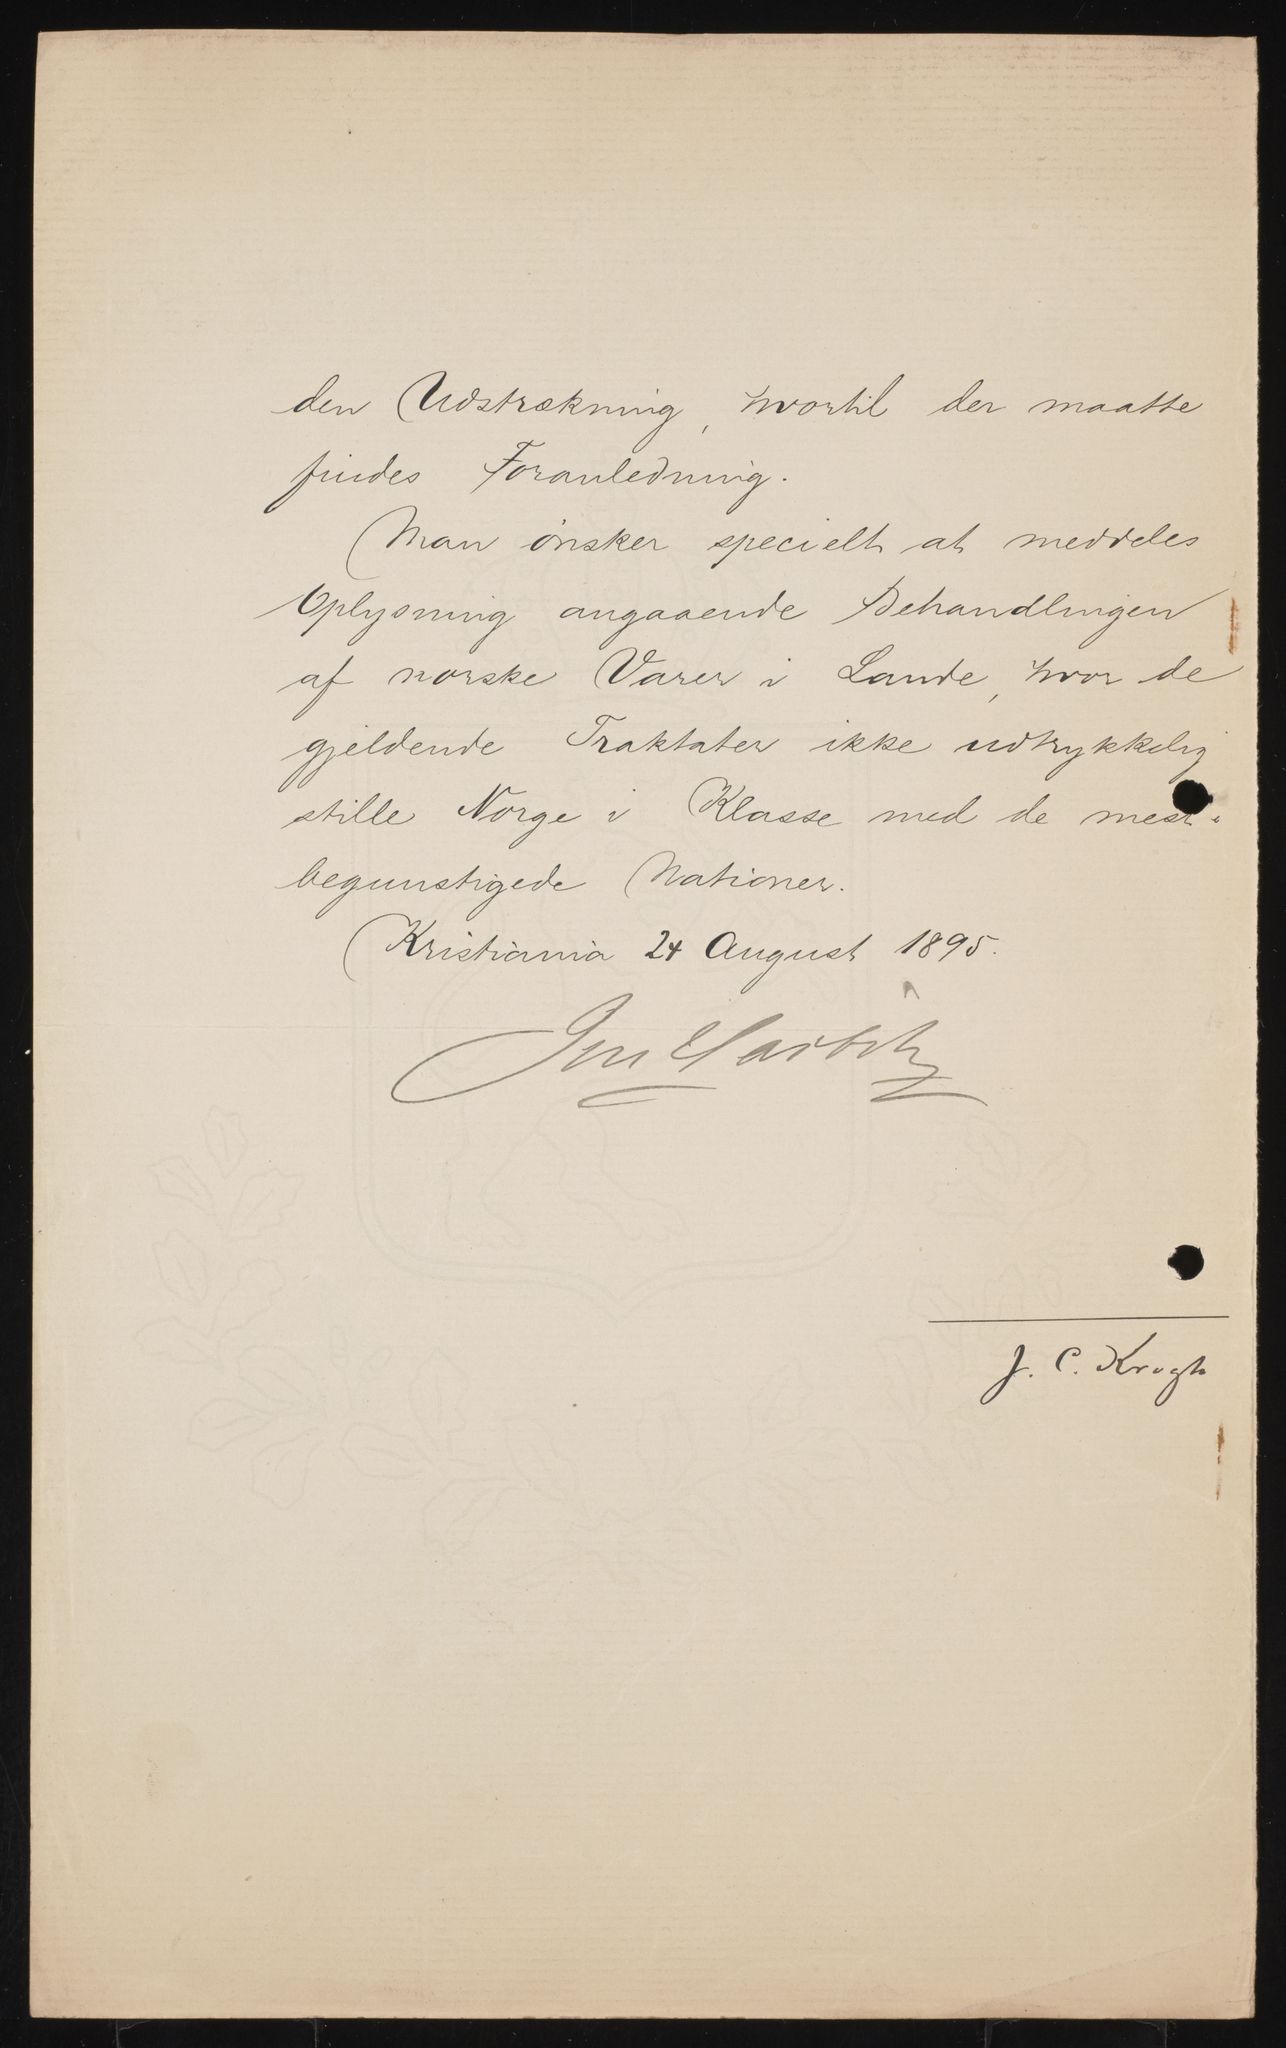 den Udstrækning, hvortil der maatte
findes Foranledning.
Man ønsker specielt at meddeles
Oplysning angaaende Behandlingen
af norske Varer i Lande, hvor de
gjeldende Traktater ikke udtrykkelig
stille Norge i Klasse med de mest-
begunstigede Nationer.
Kristiania 24 August 1895.
J. C. Krogh